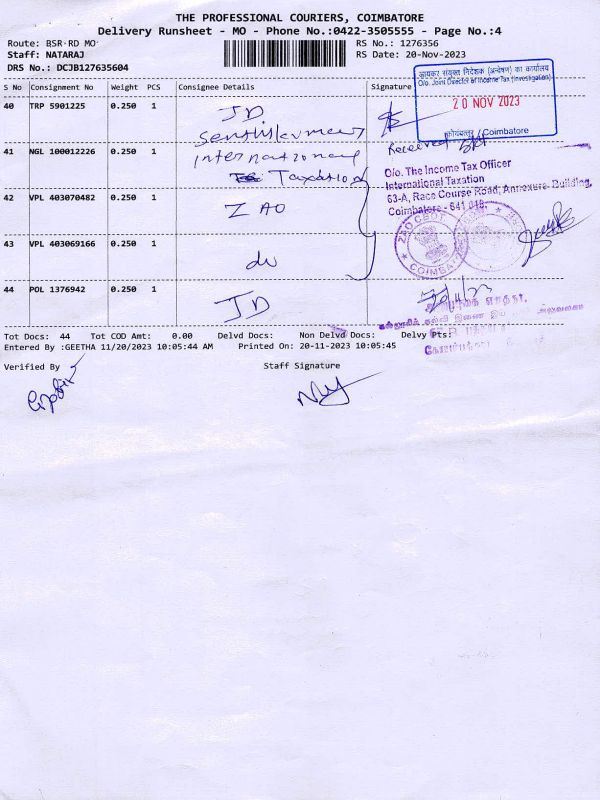 THE PROFESSIONAL COURIERS, COIMBATORE
Delivery Runsheet - MO - Phone No.:0422-3505555 - Page No.:4
Route: BSR-RD MO
RS No.: 1276356
Staff: NATARAJ
RS Date: 20-Nov-2023
DRS No.: DCJB127635604
S No Consignment No Weight PCS Consignee Details Signature
आयकर संयुक्त निदेशक (अन्वेषण) का कार्यालय
O/o. Joint Director of Income Tax (Investigation)
20 NOV 2023
कोयंबत्तूर / Coimbatore
40 TRP 5901225 0.250 1 JD
Received
41 NGL 100012226 0.250 1 International
Taxation
O/o. The Income Tax Officer
International Taxation
63-A, Race Course Road, Annexure Building,
Coimbatore - 641 018.
42 VPL 403070482 0.250 1 ZAO
ZAO CBDT
COIMBA
43 VPL 403069166 0.250 1 do
44 POL 1376942 0.250 1 JD
Tot Docs: 44 Tot COD Amt: 0.00 Delvd Docs: Non Delvd Docs: Delvy Pts:
Entered By :GEETHA 11/20/2023 10:05:44 AM Printed On: 20-11-2023 10:05:45
Verified By Staff Signature